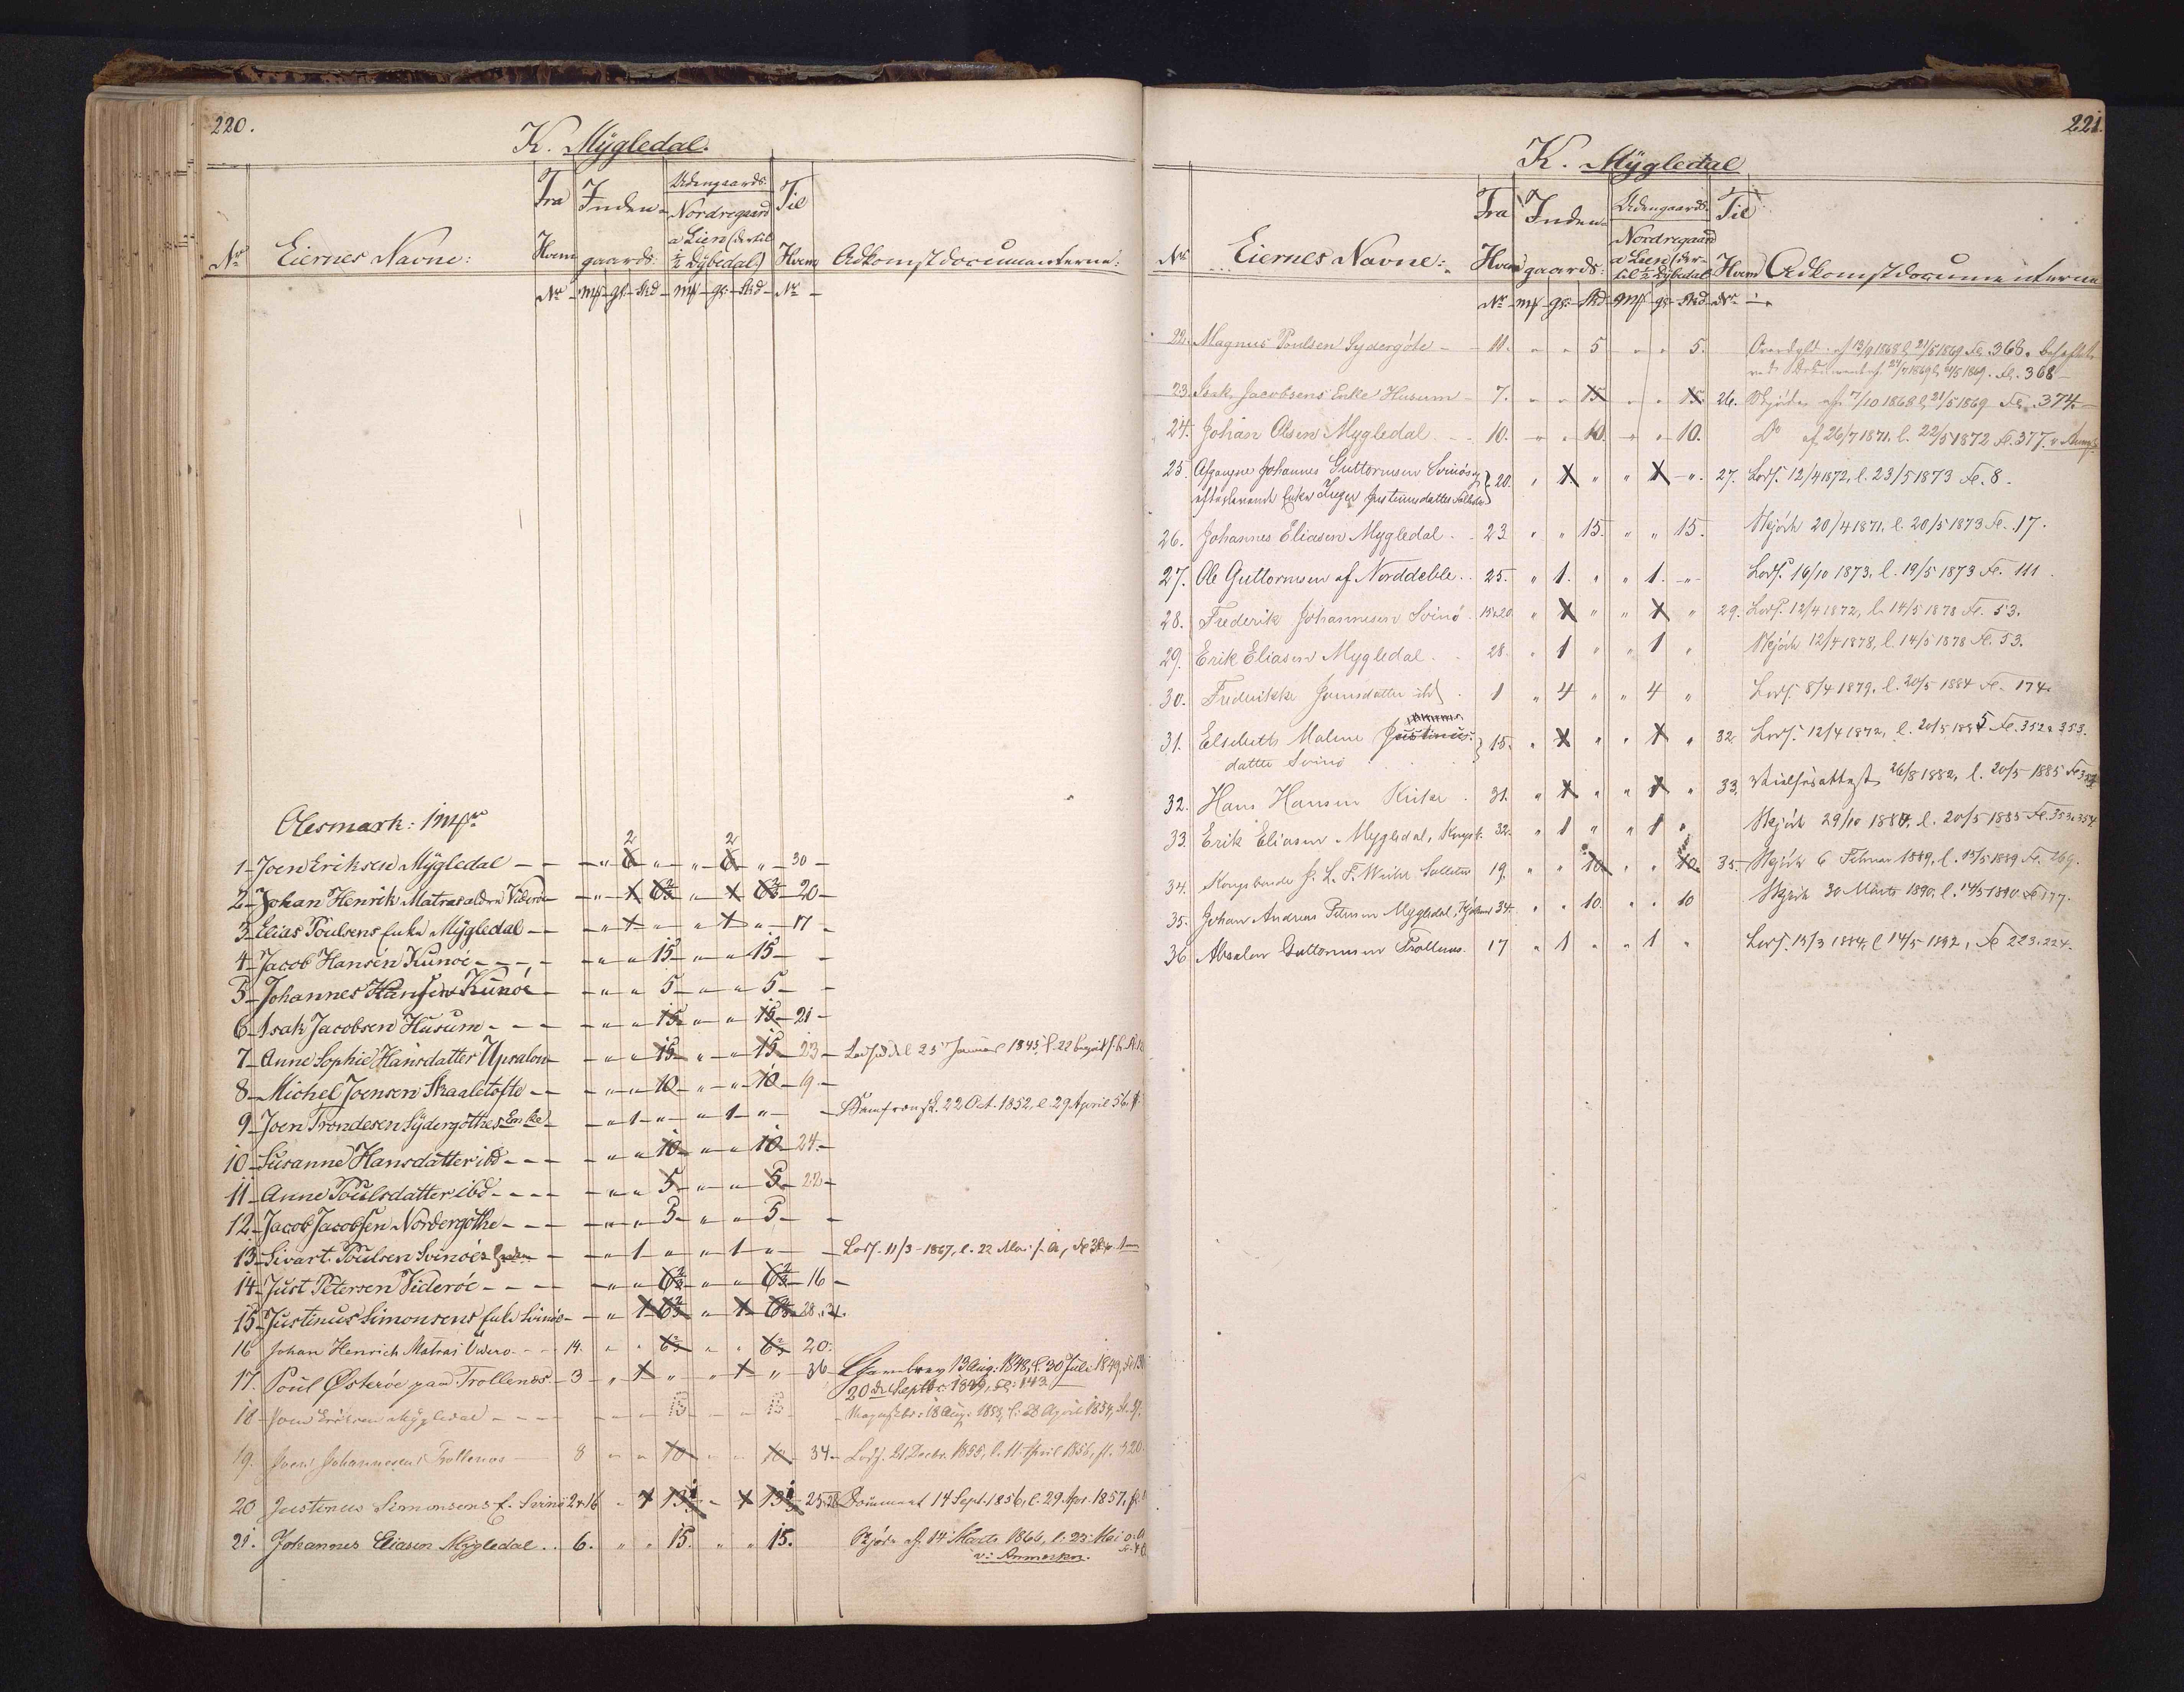 220.
K. Mýgledal.
Nr Eiernes Navne: Fra Hvem Nr Indengaards: Mk gl Skd Udengaards. Nordregaard a Lien (dertil ½ Dýbedal.) Mk gl Skd Til Hvem Nr Adkomstdocumenterne:
Olesmark: 1 Mk
2 2
1 Joen Eriksen Mýgledal " 6 " " 6 " 30
2 Johan Henrik Matras aldre Viderøe " 1 6⅔ " 1 6⅔ 20
3 Elias Poulsens Enke Mýgledal " 1 " " 1 " 17
4 Jacob Hansen Kunøe " " 15 " " 15
5 Johannes Hansen Kunøe " " 5 " " 5
6 Isak Jacobsen Husum " " 15 " " 15 21
7 Anne Sophie Hansdatter Upsalon " " 15 " " 15 23 25 Januar 1845, l. 22
8 Michel Joensen Skaaletofte " " 10 " " 10 19
9 Joen Trondesen Sýdergøthes Enke " 1 " " 1 " 22 Oct. 1852, l. 29 April 56.
10 Susanne Hansdatter ibd " " 10 " " 10 24
11 Anne Poulsdatter ibd " " 5 " " 5 22
12 Jacob Jacobsen Nordergøthe " " 5 " " 5
13 Sivart Poulsen Svinøes Enke " 1 " " 1 " Lodf. 11/3 1867, l. 22 Mai s. A.
14 Just Petersen Viderøe " " 6⅔ " " 6⅔ 16
15 Justinus Simonsens Enke Svinøe " 1 6⅔ " 1 6⅔ 28. 31.
16 Johan Henrich Matras Viderø 14. " " 6⅔ " " 6⅔ 20.
17. Poul Østerøe paa Trollenes 3 " 1 " " 1 " 36 13 Aug: 1848, l. 30 Juli 1849,
20de Septbr: 1849, Fl: 143.
18 Joen Eriksen Mýgledal " " 15 " " 15 18 Aug: 1853, l: 28 April 1854,
19. Joen Johannesen Trollenes 8 " " 10 " " 10 34 Lodf. 21 Decbr. 1855, l. 11 April 1856, fl. 320.
20 Justinus Simonsens E. Svinø 2 & 16 " 1 13⅓ " 1 13⅓ 25. 28 Document 14 Sept. 1856, l. 29 Apr. 1857,
21. Johannes Eliasen Mýgledal 6. " " 15. " " 15. Skjøde af 14 Marts 1866, l. 23 Mai
v: Anmærkn.
221.
K. Mýgledal
Nr Eiernes Navne: Fra Hvem Nr Indengaards: Mk gl Skd Udengaards. Nordregaard a Lien (dertil ½ Dýbedal Mk gl Skd Til Hvem Nr Adkomstdocumenterne
22. Magnus Poulsen Sydergøte 11. " " 5 " " 5. af 13/9 1868 l. 21/5 1869 Fl. 368.
1869. Fl. 368
23. Isak Jacobsens Enke Husum 7. " " 15 " " 15. 26. Skjøde af 7/10 1868 l. 21/5 1869 Fl. 374.
24. Johan Olsen Mygledal 10. " " 10. " " 10. Do af 26/7 1871. l. 22/5 1872 Fl. 377.
25. Afgangne Johannes Guttormsen Svinøs og 20. " 1 " " 1 " 27. Lodf. 12/4 1872, l. 23/5 1873 Fl. 8.
efterlevende Enke Inger Justinusdatter
26. Johannes Eliasen Mygledal 23 " " 15. " " 15. Skjøde 20/4 1871, l. 20/5 1873 Fl. 17.
27. Ole Guttormsen af Norddeble 25. " 1. " " 1. " Lodf. 16/10 1873, l. 19/5 1873 Fl. 111.
28. Frederik Johannesen Svinø 15 & 20 " 1 " " 1 " 29. Lodf. 12/4 1872, l. 14/5 1878 Fl. 53.
29. Erik Eliasen Mygledal 28. " 1 " " 1 " Skjøde 12/4 1878, l. 14/5 1878 Fl. 53.
30. Fredrikke Joensdatter ibd 1 " 4 " " 4 " Lodf. 8/4 1879, l. 20/5 1884 Fl. 174.
31. Elsebeth Malene Justinus- 15. " 1 " " 1 " 32. Lodf. 12/4 1872, l. 20/5 1885 Fl. 352 & 353.
datter Svinø
32. Hans Hansen 31. " 1 " " 1 " 33. Vielsesattest 26/8 1882, l. 20/5 1885
33. Erik Eliasen Mygledal, Kongsb. 32. " 1 " " 1 " Skjøde 29/10 1884, l. 20/5 1885 Fl. 353 & 354.
34. Kongsbonde J. L. F. Weihe Selletræ 19. " " 10 " " 10 35. Skjøde 6 Februar 1889, l. 15/5 1889 Fl. 269.
35. Johan Andreas Petersen Mygledal, 34. " " 10. " " 10 Skjøde 30 Marts 1890, l. 14/5 1890
36 Absalon Guttormsen Trollenes. 17 " 1 " " 1 " Lodf. 13/3 1884, l. 14/5 1892, Fl 223. 224.